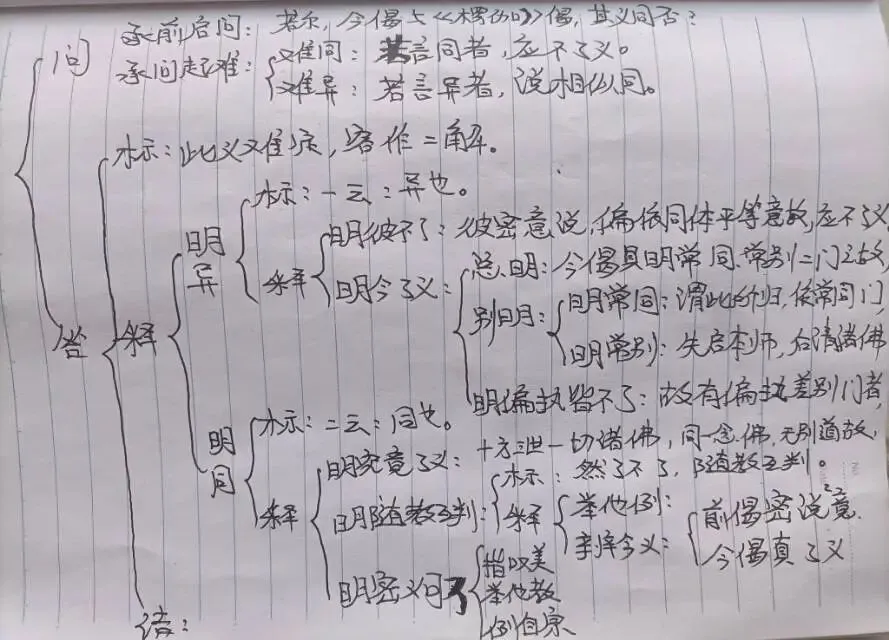 问
承前启问：若尔，今偈与《楞伽》偈，其义同否？
承问起难：
难同：若言同者，应不了义。
难异：若言异者，说相似同。
答
标示：此义难，容作二解。
释
明异
标示：一云：异也。
释
明彼不了：彼密意说，偏依同体平等意故，应不了义
明今了义：
总明：今偈具明常同、常别二门之故，
别明：
明常同：谓此的归，依常同门，
明常别：先启本师，后请诸佛
明偏执皆不了：故有偏执差别门者，
明同
标示：二云：同也。
释
明究竟了义：十方世一切诸佛，同一念佛，无别道故，
明随教判：
标示：然了不了，随教互判。
释
举他例：
辛今义：
前偈密说意
今偈真了义
明密义可了
指叹美
举他教
例自宗
结：